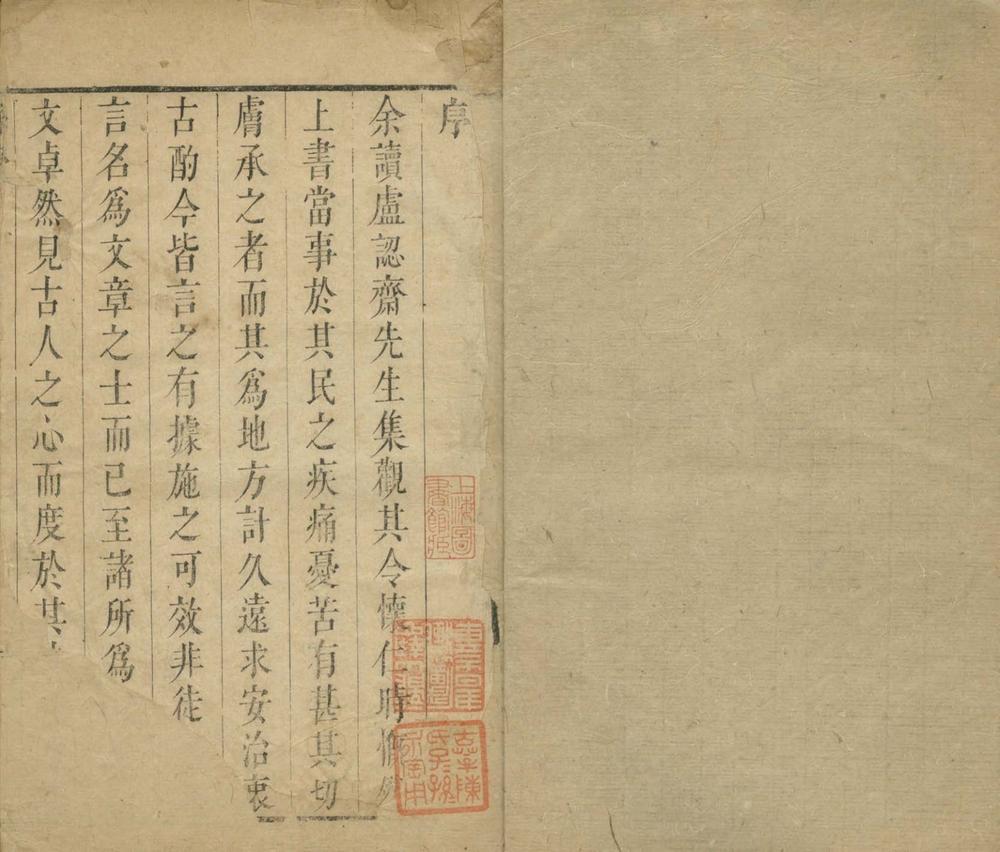 序
余讀盧認齋先生集觀其令懷仁時慨然
上書當事於其民之疾痛憂苦有甚其切
膚承之者而其爲地方計久遠求安治衷
古酌今皆言之有據施之可效非徒
言名爲文章之士而已至諸所爲
文卓然見古人之心而度於其
上海圖書館藏